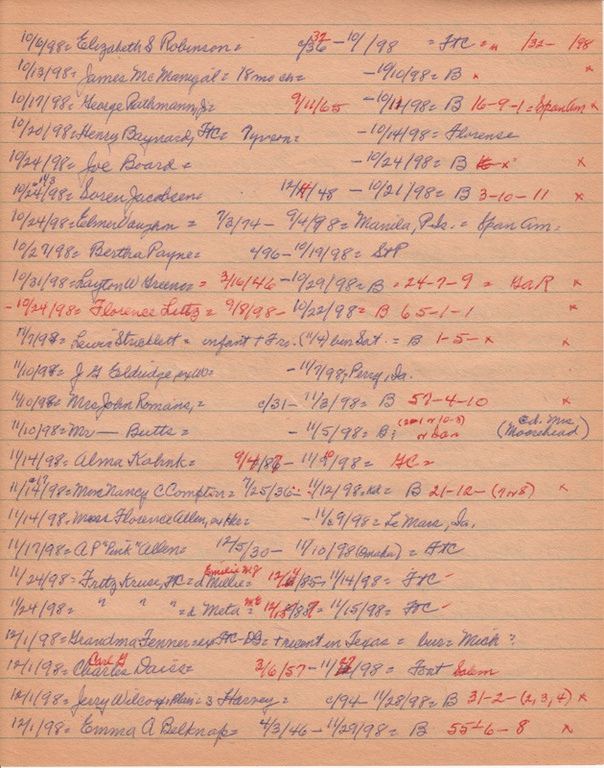 10/6/98 = Elizabeth S Robinson = c/36 32 - 10/1/98 = FtC = " /32 - /98
10/13/98 = James McManigal = 78 mo = - 10/10/98 = B x x
10/17/98 = George Ruthmann, Jr = 9/11/65 - 10/11/98 = B 16-9-1 = Span Am x
10/20/98 = Henry Baynard, FtC = Tyson = - 10/14/98 = Florence
10/24/98 = Joe Board = - 10/24/98 = B x x
10/24/98 = Soren Jacobsen = 12/11/48 - 10/21/98 = B 3-10-11 x
10/24/98 = Elmer Vaughn = 7/3/74 - 9/4/98 = Manila, P.Is. = Span Am =
10/27/98 = Bertha Payne = c/96 - 10/19/98 = StP
10/31/98 = Layton W Greene = 3/16/46 - 10/29/98 = B = 24-7-9 = GaR x
- 10/24/98 = Florence Lutz = 9/8/98 - 10/22/98 = B 65-1-1 x
11/7/98 = Lewis Stricklett = infant + Fri. (11/4) bur Sat. = B 1-5-x x
11/10/98 = J G Eldridge, ex W = - 11/7/98, Perry, Ia.
11/10/98 = Mrs John Romans, = c/31 - 11/3/98 = B 57-4-10 x
11/10/98 = Mr — Butts = - 11/5/98 = B; (Ed. Mrs Moorehead)
11/14/98 = Alma Kahnk = 9/4/87 - 11/10/98 = GC =
11/14/98 = Mrs Nancy C Compton = 7/25/36 - 11/12/98, = B 21-12-(7 or 8) x
11/14/98, Miss Florence Allen, ex Her = - 11/9/98 = Le Mars, Ia.
11/17/98 = A P "Pink" Allen = 12/5/30 - 11/10/98 (Omaha) = FtC
11/24/98 = Fritz Kruse, FC = d Millie = Emilie M J 12/14/85 - 11/14/98 = FtC -
11/24/98 = " " " = d Meta = 12/13/87 - 11/15/98 = FtC -
12/1/98 = Grandma Fenner = ex FtC - DG = + recent in Texas = bur = Mich?
12/1/98 = Charles Carl G Daiss = 3/6/57 - 11/27/98 = Font Salem
12/1/98 = Jerry Wilcox, Plain = 3 Harney = c/94 - 11/28/98 = B 31-2-(2,3,4) x
12/1/98 = Emma A Belknap = 4/3/46 - 11/29/98 = B 55-6-8 x